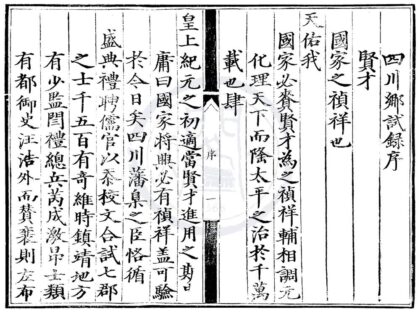 四川鄉試録序
賢才
國家之禎祥也
天佑我
國家必賚賢才為之禎祥輔相調元
化理天下而隆太平之治於千萬
載也肆
序
一
皇上紀元之初適當賢才進用之期
庸曰國家將興必有禎祥盖可驗
於今日矣四川藩臬之臣恪循
盛典禮聘儒官以泰校文合試七郡
之士千五百有奇維時鎮靖地方
有少監閻禮總兵芮成激昂士類
有都御史汪浩外而賛襄則左布